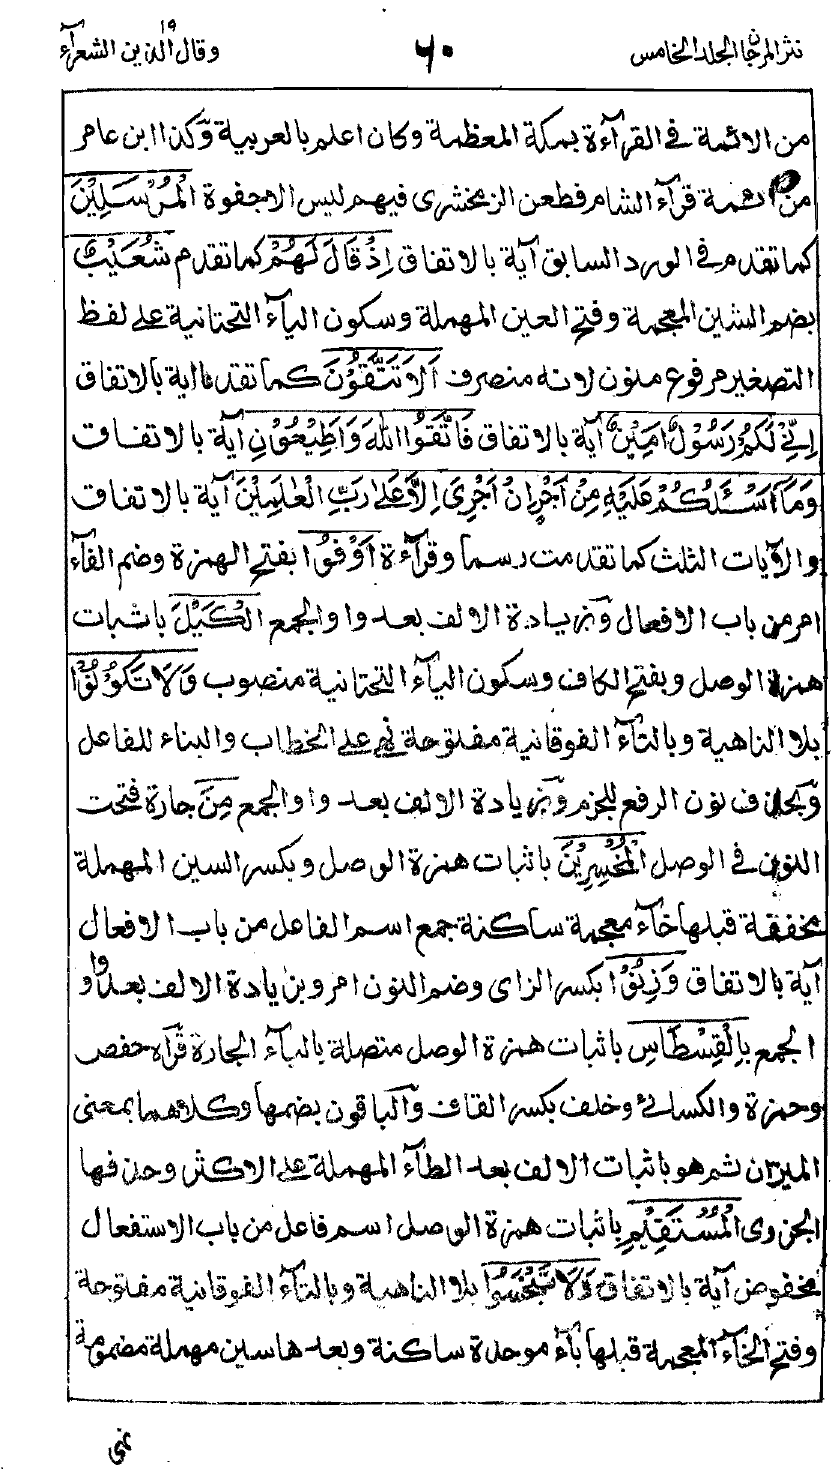 نثر المرجان الجلد الخامس ٦٠ وقال الذين ١٩ الشعرآء
من الائمة فى القرآءة بمكة المعظمة وكان اعلم بالعربية وكذا ابن عامر
من ائمة قرآء الشام فطعن الزمخشرى فيهم ليس الا جفوة الْمُرْسَلِيْنَ
كما تقدم فى الورد السابق آية بالاتفاق اِذْ قَالَ لَهُمْ كما تقدم شُعَيْبٌ
بضم الشين المعجمة وفتح العين المهملة وسكون اليآء التحتانية على لفظ
التصغير مرفوع منون لانه منصرف اَلَا تَتَّقُوْنَ كما تقدم اية بالاتفاق
اِنِّىْ لَكُمْ رَسُوْلٌ اَمِيْنٌ آية بالاتفاق فَاتَّقُوا اللّٰهَ وَاَطِيْعُوْنِ آية بالاتفاق
وَمَآ اَسْـَٔلُكُمْ عَلَيْهِ مِنْ اَجْرٍ اِنْ اَجْرِىَ اِلَّا عَلٰى رَبِّ الْعٰلَمِيْنَ آية بالاتفاق
والآيات الثلث كما تقدمت رسما وقرآءة اَوْفُوا بفتح الهمزة وضم الفآء
امر من باب الافعال وبزيادة الالف بعد واو الجمع الْكَيْلَ باثبات
همزة الوصل وبفتح الكاف وسكون اليآء التحتانية منصوب وَلَا تَكُوْنُوْا
بلا الناهية وبالتآء الفوقانية مفتوحة نهى على الخطاب والبناء للفاعل
وبحذف نون الرفع للجزم وبزيادة الالف بعد واو الجمع مِنَ جارة فتحت
النون فى الوصل الْمُخْسِرِيْنَ باثبات همزة الوصل وبكسر السين المهملة
مخففة قبلها خآء معجمة ساكنة جمع اسم الفاعل من باب الافعال
آية بالاتفاق وَزِنُوْا بكسر الزاى وضم النون امر وبزيادة الالف بعد واو
الجمع بِالْقِسْطَاسِ باثبات همزة الوصل متصلة بالبآء الجارة قرأه حفص
وحمزة والكسائى وخلف بكسر القاف والباقون بضمها وكلاهما بمعنى
الميزان ثم هو باثبات الالف بعد الطآء المهملة على الاكثر وحذفها
الجزرى الْمُسْتَقِيْمِ باثبات همزة الوصل اسم فاعل من باب الاستفعال
مخفوض آية بالاتفاق وَلَا تَبْخَسُوا بلا الناهية وبالتآء الفوقانية مفتوحة
وفتح الخآء المعجمة قبلها بآء موحدة ساكنة وبعدها سين مهملة مضمومة
نهى